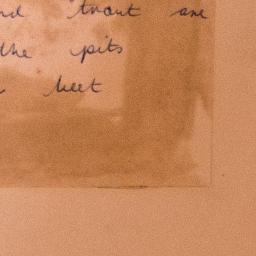 trout are
the pits
beet